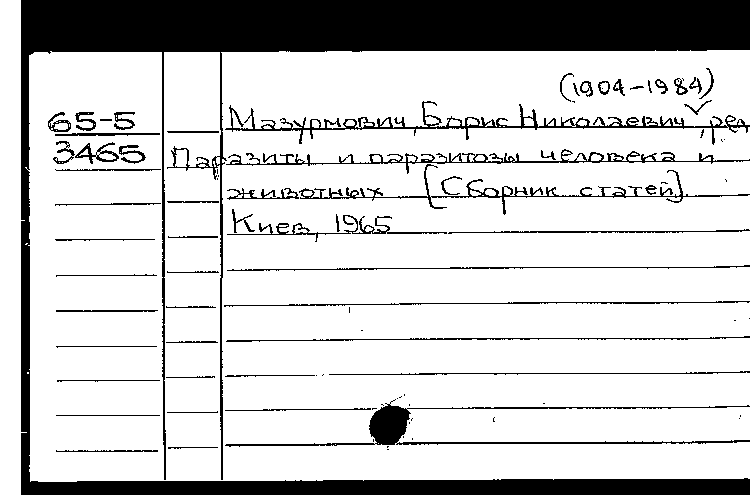 (1904-1984)
65-5 Мазурмович, Борис Николаевич, ред
3465 Паразиты и паразитозы человека и
животных [Сборник статей].
Киев, 1965